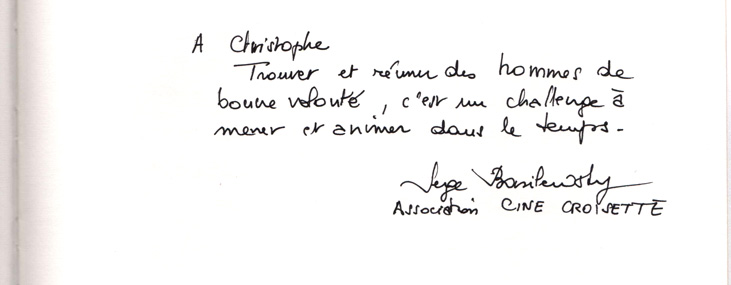 A Christophe
Trouver et réunir des hommes de
bonne volonté, c'est un challenge à
mener et animer dans le temps.
Serge Basilewsky
Association CINE CROISETTE